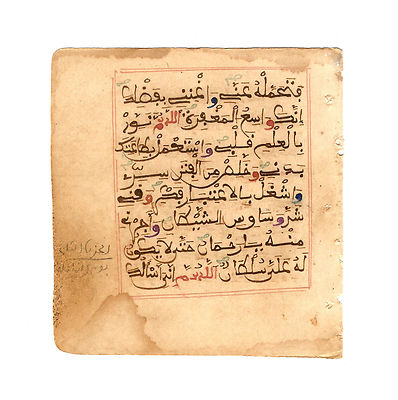 فتحمله عني واغنني بفضلك
إنك واسع المغفرة اللهم نور
بالعلم قلبي واستعمل بطاعتك
بدني وخلص من الفتن سري
واشغل بالاعتبار فكري وقني
شر وساوس الشيطان وأجرني
منه يا رحمان حتى لا يكون
له علي سلطان اللهم إني أسألك